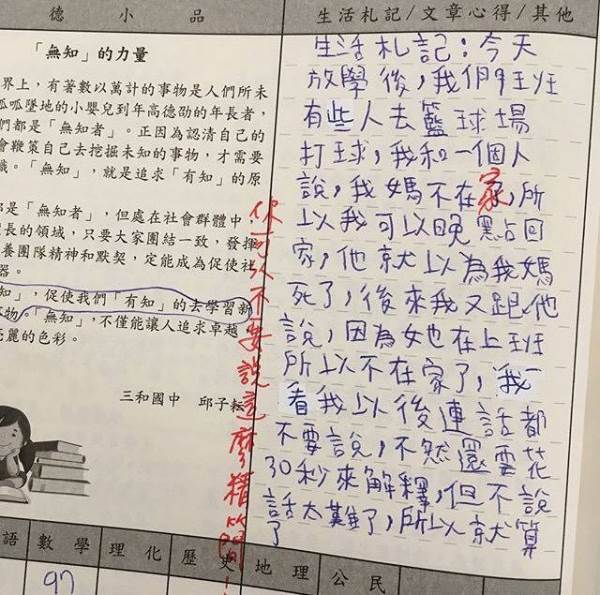 德 小 品
「無知」的力量
界上，有著數以萬計的事物是人們所未
呱呱墜地的小嬰兒到年高德劭的年長者，
們都是「無知者」。正因為認清自己的
會鞭策自己去挖掘未知的事物，才需要
識。「無知」，就是追求「有知」的原
是「無知者」，但處在社會群體中
長的領域，只要大家團結一致，發揮
養團隊精神和默契，定能成為促使社
器。
知」，促使我們「有知」的去學習新
事物。「無知」，不僅能讓人追求卓越
亮麗的色彩。
三和國中 邱子耘
你可以不要說這麼精簡！
生活札記/文章心得/其他
生活札記：今天
放學後，我們班
有些人去籃球場
打球，我和一個人
說，我媽不在家，所
以我可以晚點回
家，他就以為我媽
死了，後來我又跟他
說，因為她在上班
所以不在家了，我
看我以後連話都
不要說，不然還要花
30秒來解釋，但不說
話太難了，所以就算
了
語 數學 理化 歷史 地理 公民
97